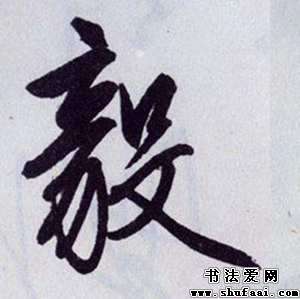 毅
书法爱网
www.shufaai.com